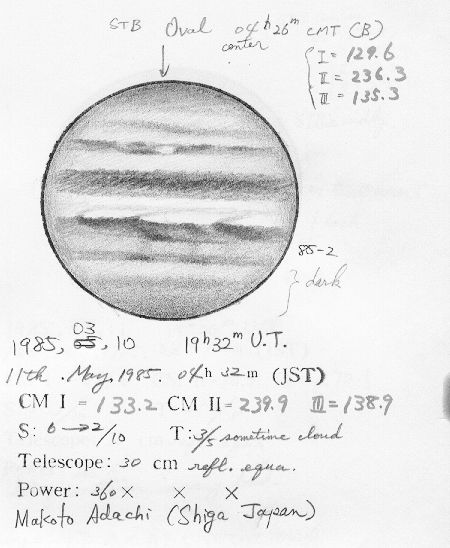 STB Oval 04h26m CMT (B)
center
I = 129.6
II = 236.3
III = 135.3
85-2
dark
03
1985, 05, 10 19h32m U.T.
11th. May, 1985. 04h 32m (JST)
CM I = 133.2 CM II = 239.9 III = 138.9
S: 6→2/10 T: 3/5 sometime cloud
Telescope: 30 cm refl. equa.
Power: 360× × ×
Makoto Adachi (Shiga Japan)